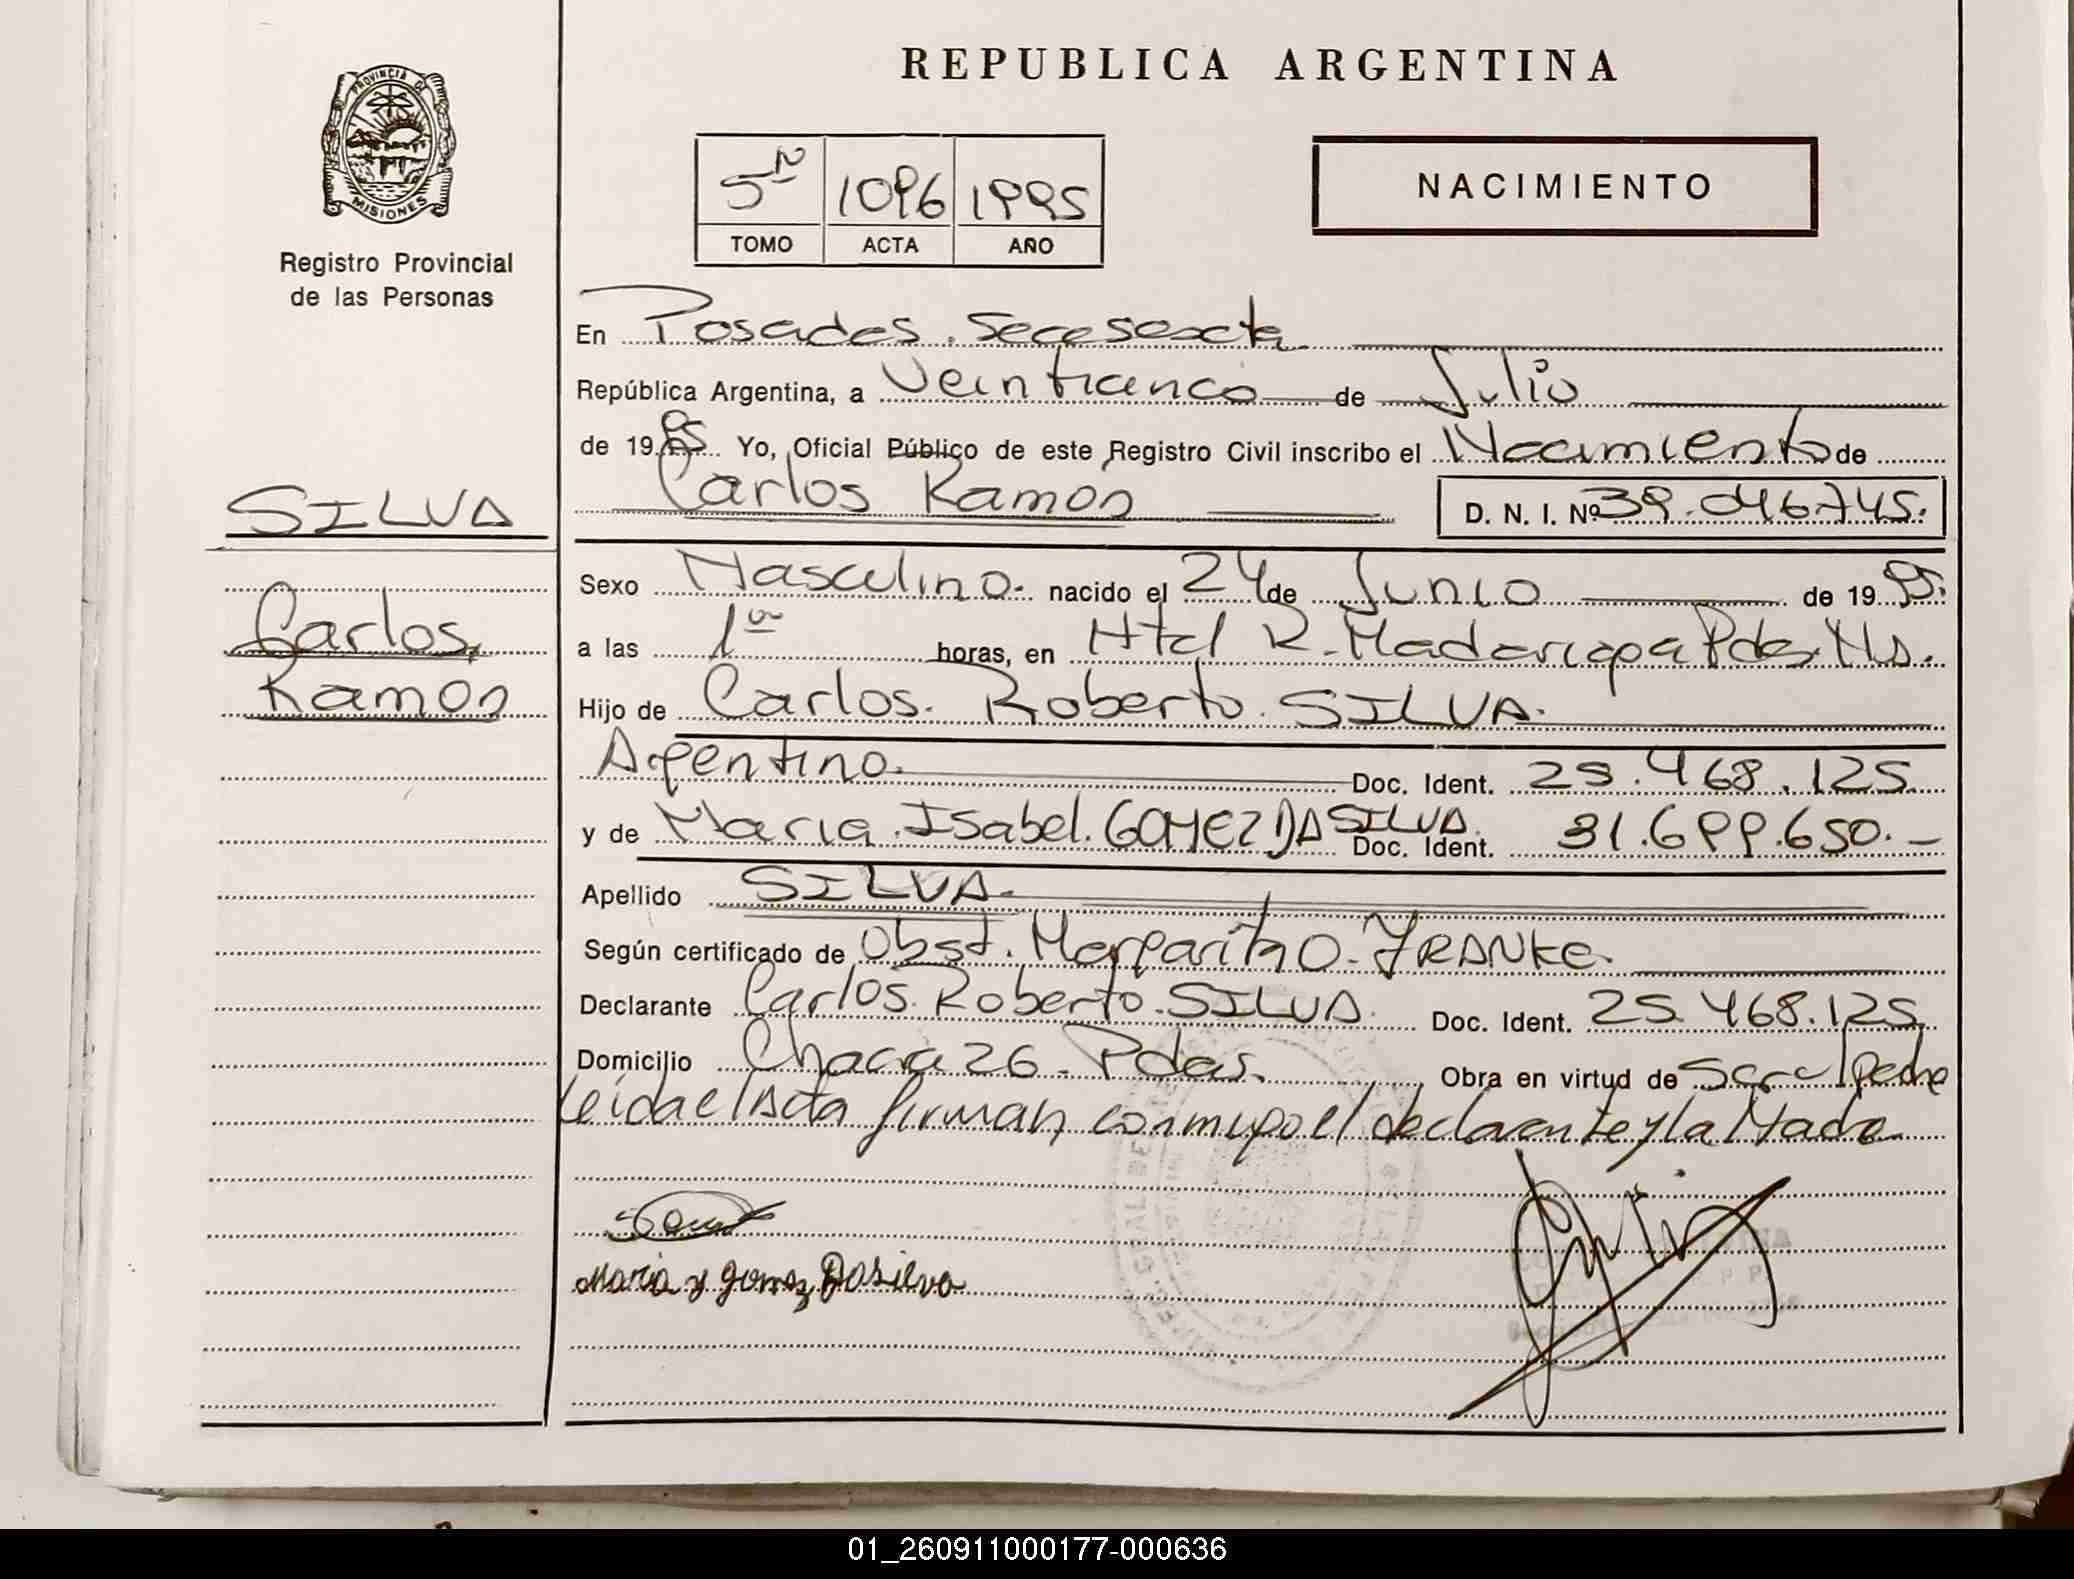 REPUBLICA ARGENTINA
PROVINCIA DE
MISIONES
Registro Provincial
de las Personas
5º 1096 1995
TOMO ACTA AÑO
NACIMIENTO
En Posadas. Secc sexta
República Argentina, a Veinticinco de Julio
de 1995 Yo, Oficial Público de este Registro Civil inscribo el Nacimiento de
Carlos Ramon D. N. I. Nº 39.046.745.
SILVA
Carlos
Ramon
Sexo Masculino. nacido el 24 de Junio de 1995.
a las 1ª horas, en Htal R. Madariaga Pdas. Ms.
Hijo de Carlos. Roberto. SILVA.
Argentino. Doc. Ident. 25.468.125.
y de Maria. Isabel. GOMEZ DA SILVA. Doc. Ident. 31.699.650.-
Apellido SILVA.
Según certificado de Obst. Margarita O. FRANKE.
Declarante Carlos. Roberto. SILVA. Doc. Ident. 25.468.125.
Domicilio Chacra 26. Pdas. Obra en virtud de ser el padre
Leida el Acta firman conmigo el declarante y la Madre
Maria y gomez Dasilva
01_260911000177-000636